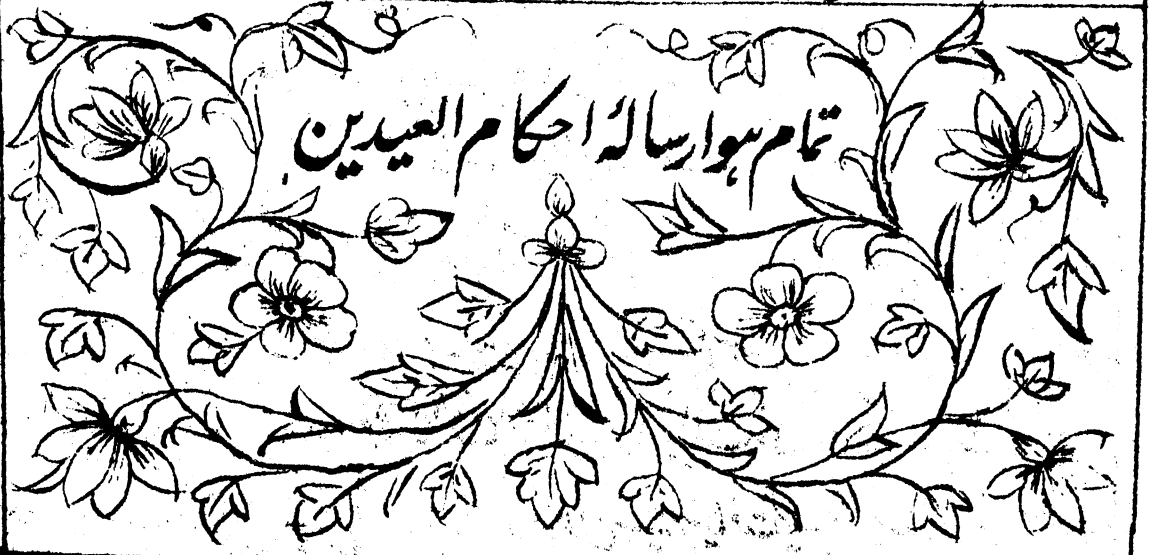 تمام ہوا رسالۂ احکام العیدین